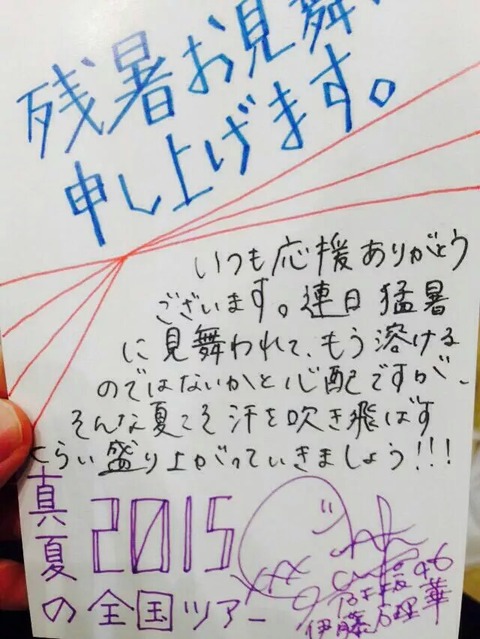 残暑お見舞い
申し上げます。
いつも応援ありがとう
ございます。連日猛暑
に見舞われて、もう溶ける
のではないかと心配ですが、
そんな夏こそ汗を吹き飛ばす
くらい盛り上がっていきましょう!!!
真夏の
2015
全国ツアー
乃木坂46
伊藤万理華